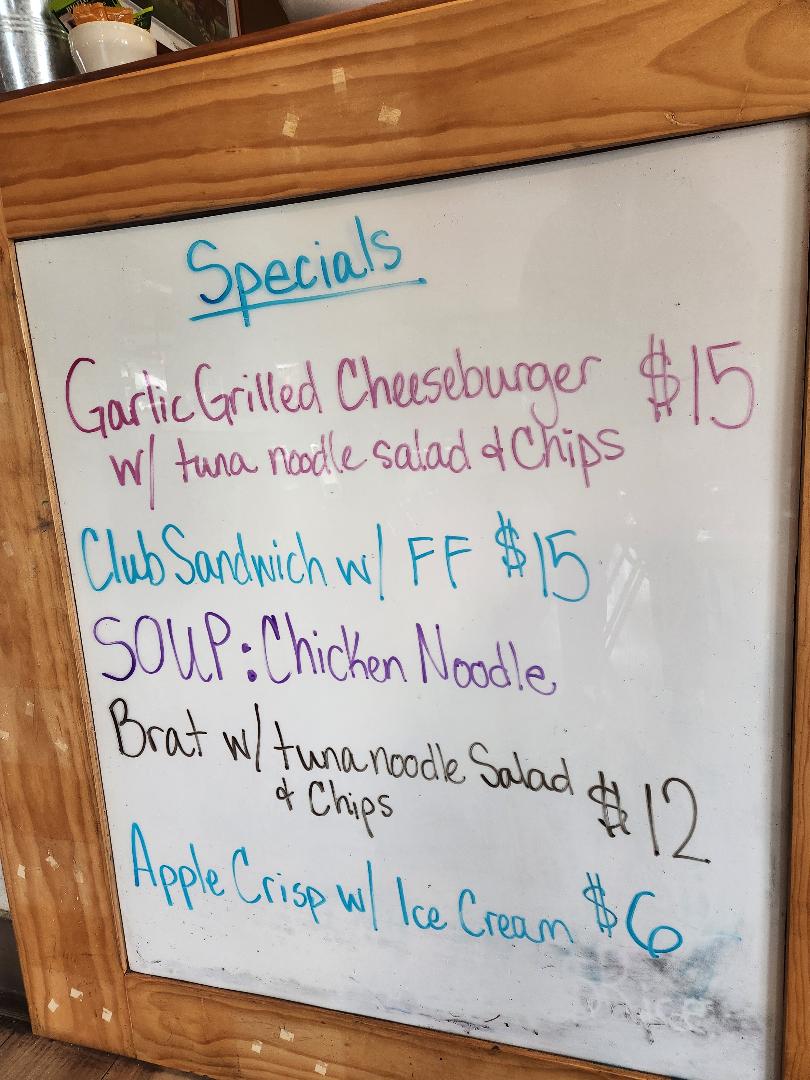 Specials
Garlic Grilled Cheeseburger $15
w/ tuna noodle salad & Chips
Club Sandwich w/ FF $15
SOUP: Chicken Noodle
Brat w/ tuna noodle Salad
& Chips $12
Apple Crisp w/ Ice Cream $6